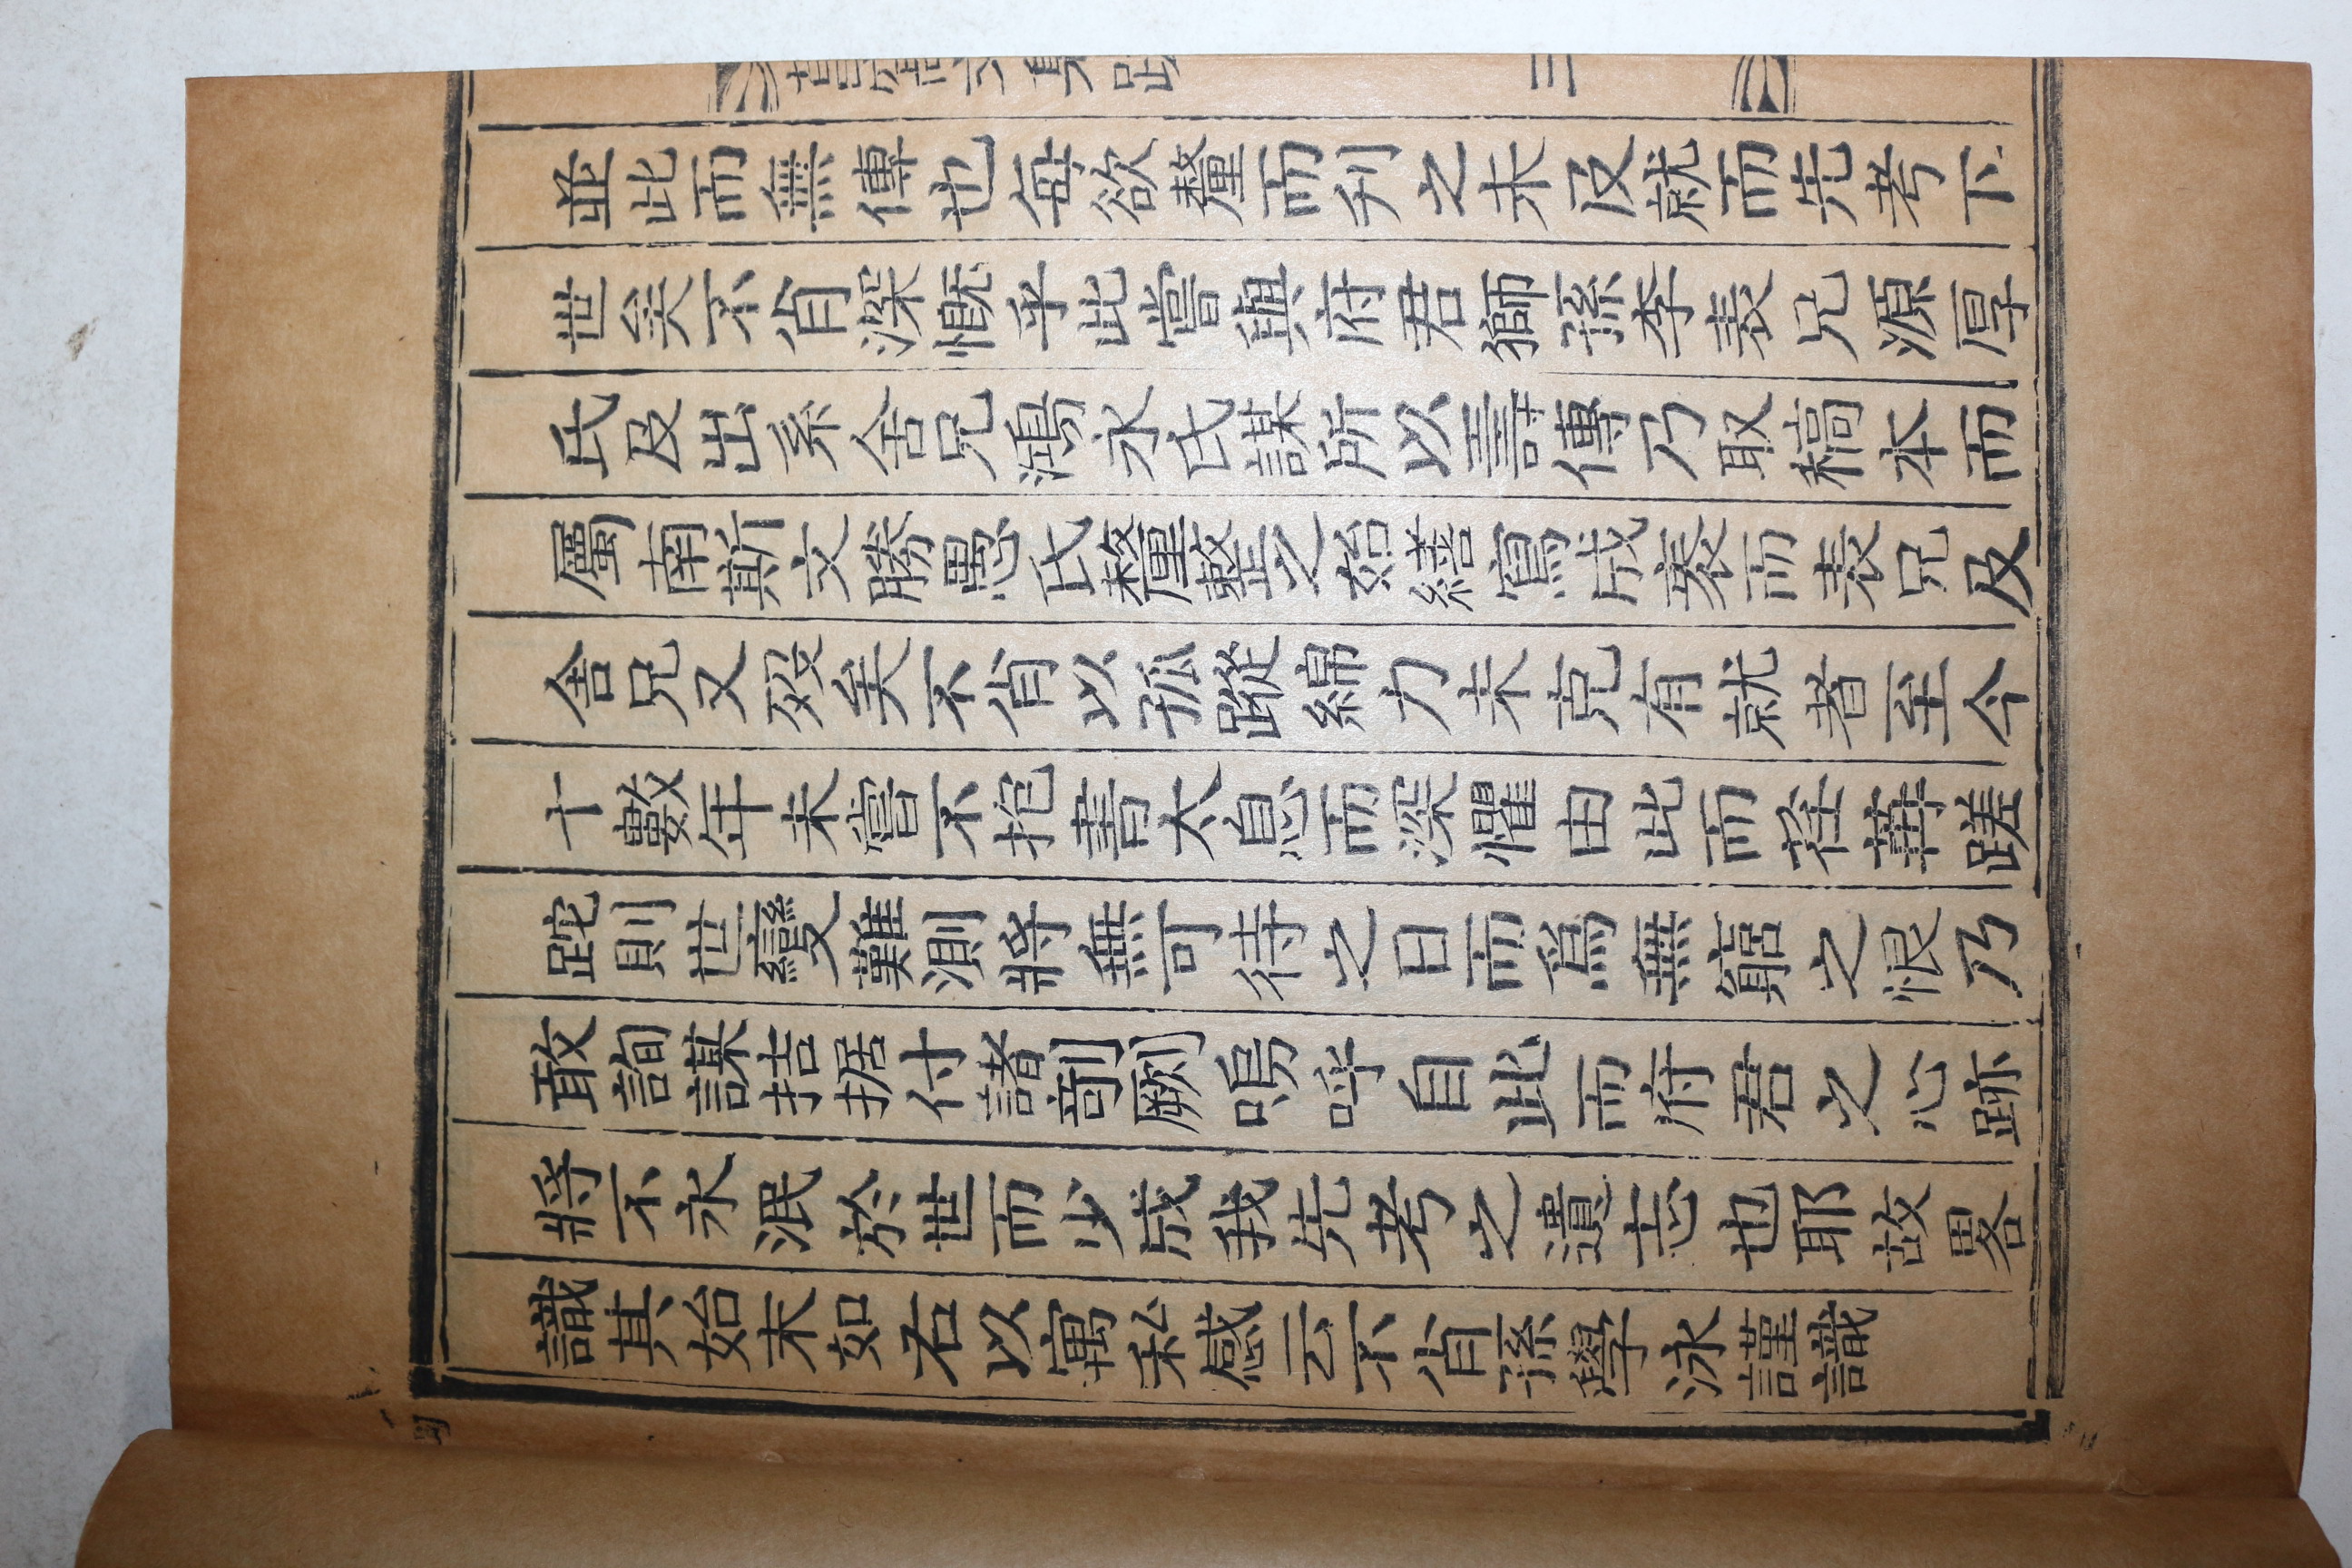 並此而無傳也每欲釐而刋之未及就而先考下
世矣不肖深慨乎此嘗與府君獅孫李表兄源厚
氏及出系舍兄鴻永氏謀所以壽傳乃取稿本而
屬南斯文勝愚氏釐整之繕寫成袠而表兄及
舍兄又歿矣不肖以孤蹤綿力未克有就者至今
十數年未嘗不抱書太息而深懼由此而荏苒蹉
跎則世變難測將無可待之日而爲無窮之恨乃
敢詢謀拮据付諸剞劂嗚呼自此而府君之心跡
將不永泯於世而少成我先考之遺志也耶故畧
識其始末如右以寓私感云不肖孫學泳謹識